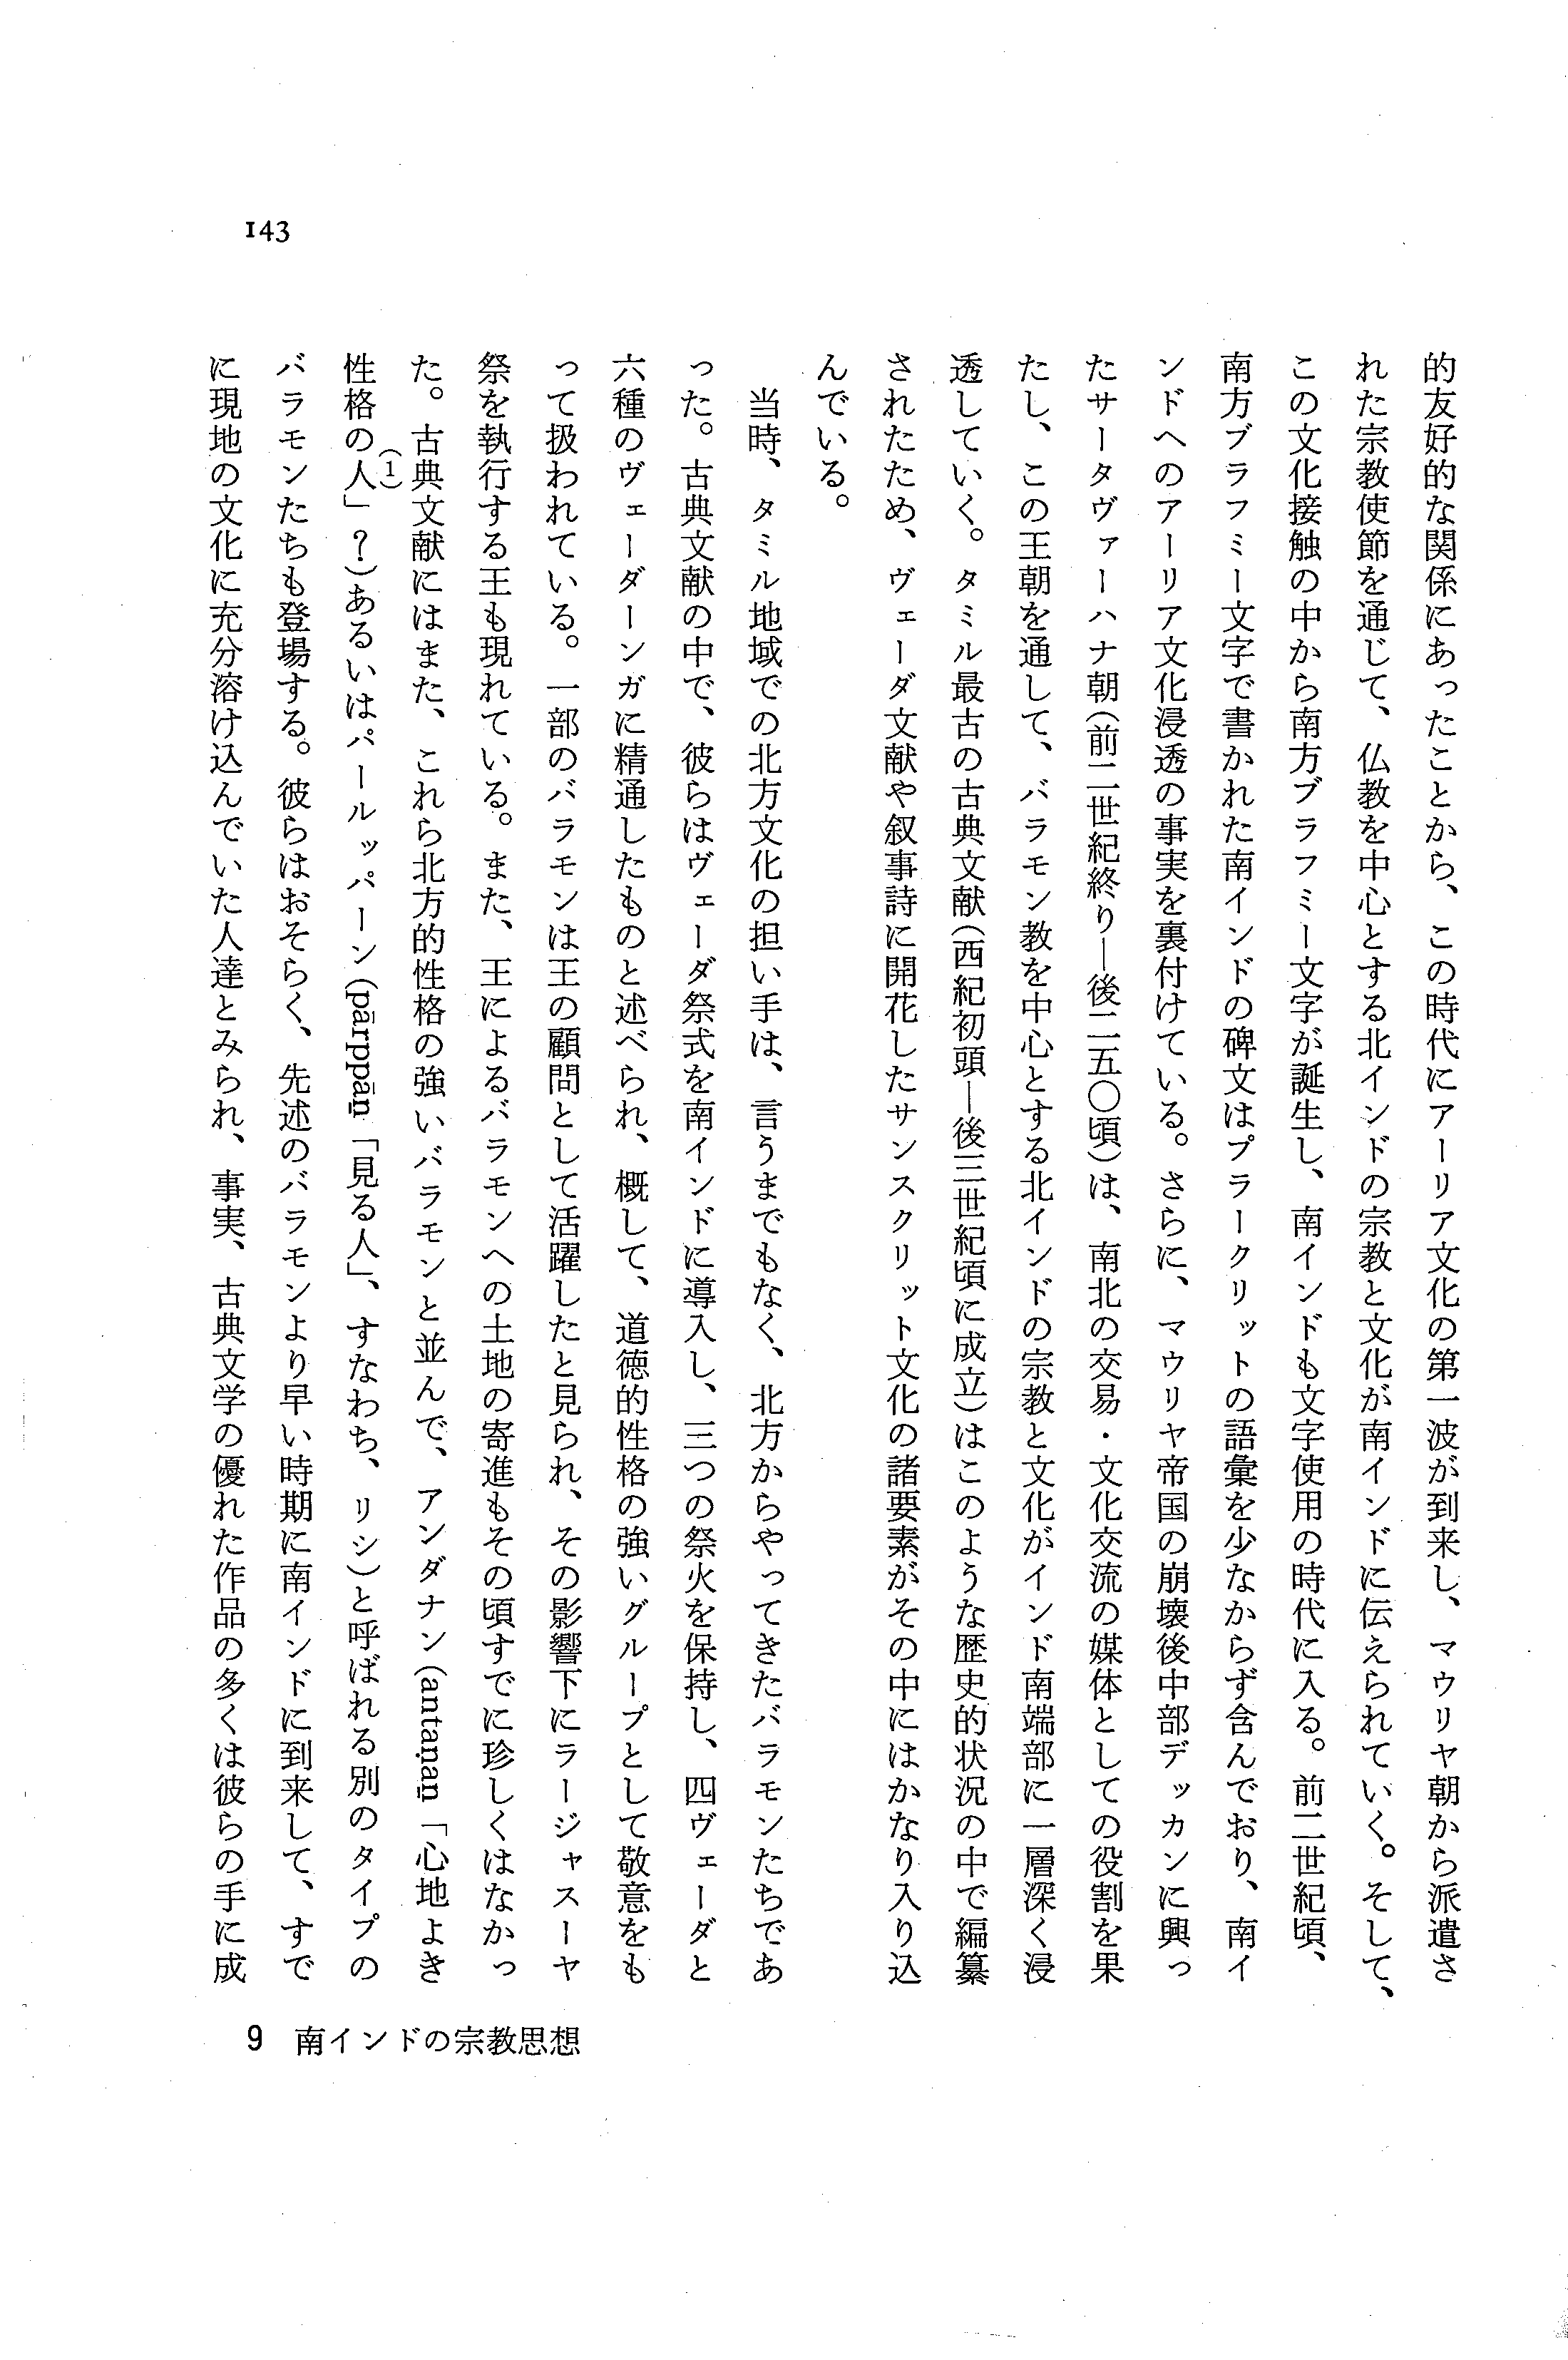 的友好的な関係にあったことから、この時代にアーリア文化の第一波が到来し、マウリヤ朝から派遣さ
れた宗教使節を通じて、仏教を中心とする北インドの宗教と文化が南インドに伝えられていく。そして、
この文化接触の中から南方ブラフミー文字が誕生し、南インドも文字使用の時代に入る。前二世紀頃、
南方ブラフミー文字で書かれた南インドの碑文はプラークリットの語彙を少なからず含んでおり、南イ
ンドへのアーリア文化浸透の事実を裏付けている。さらに、マウリヤ帝国の崩壊後中部デッカンに興っ
たサータヴァーハナ朝(前二世紀終り—後二五〇頃)は、南北の交易・文化交流の媒体としての役割を果
たし、この王朝を通して、バラモン教を中心とする北インドの宗教と文化がインド南端部に一層深く浸
透していく。タミル最古の古典文献(西紀初頭—後三世紀頃に成立)はこのような歴史的状況の中で編纂
されたため、ヴェーダ文献や叙事詩に開花したサンスクリット文化の諸要素がその中にはかなり入り込
んでいる。
　当時、タミル地域での北方文化の担い手は、言うまでもなく、北方からやってきたバラモンたちであ
った。古典文献の中で、彼らはヴェーダ祭式を南インドに導入し、三つの祭火を保持し、四ヴェーダと
六種のヴェーダーンガに精通したものと述べられ、概して、道徳的性格の強いグループとして敬意をも
って扱われている。一部のバラモンは王の顧問として活躍したと見られ、その影響下にラージャスーヤ
祭を執行する王も現れている。また、王によるバラモンへの土地の寄進もその頃すでに珍しくはなかっ
た。(1)古典文献にはまた、これら北方的性格の強いバラモンと並んで、アンダナン(antaṇaṉ「心地よき
性格の人」?)あるいはパールッパーン(pārppāṉ「見る人」、すなわち、リシ)と呼ばれる別のタイプの
バラモンたちも登場する。彼らはおそらく、先述のバラモンより早い時期に南インドに到来して、すで
に現地の文化に充分溶け込んでいた人達とみられ、事実、古典文学の優れた作品の多くは彼らの手に成
143
9　南インドの宗教思想